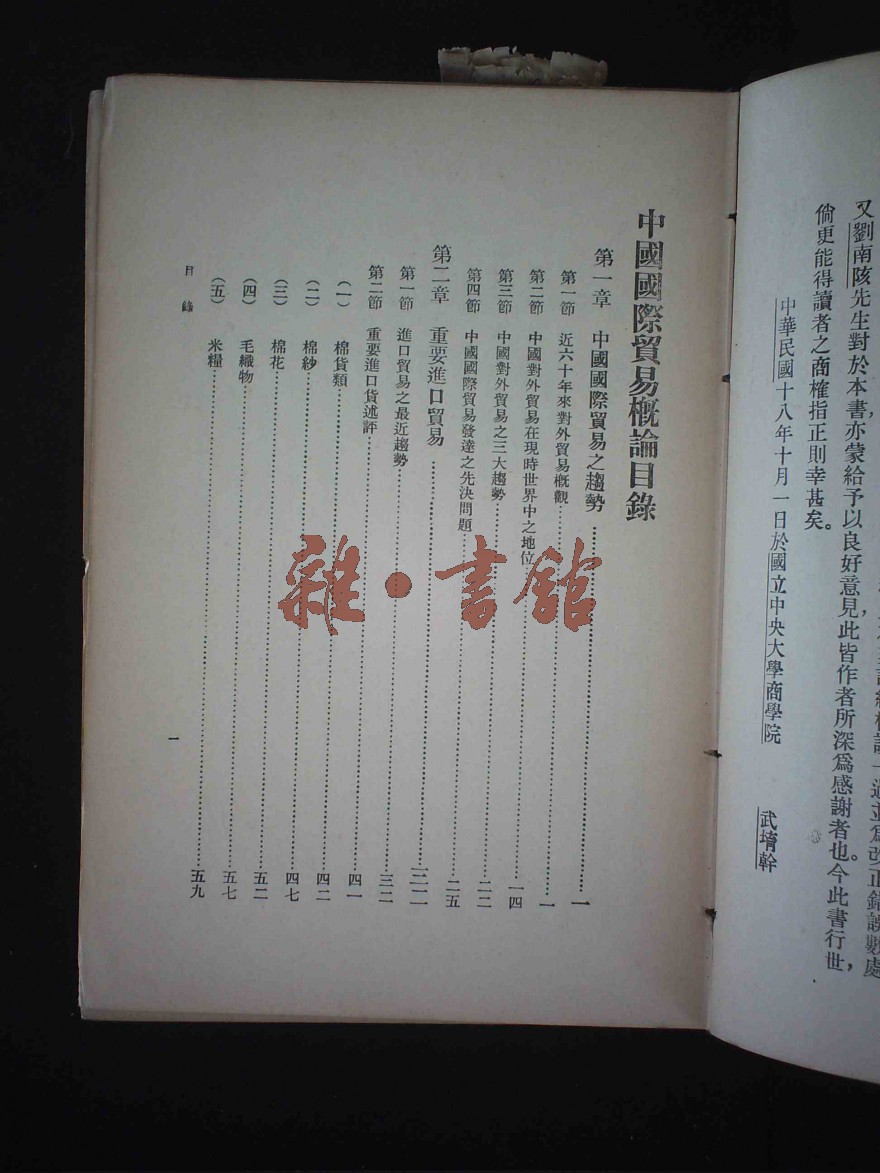 一過並爲改正錯誤數處
又劉南陔先生對於本書亦蒙給予以良好意見,此皆作者所深爲感謝者也。今此書行世,
倘更能得讀者之商榷指正則幸甚矣。
中華民國十八年十月一日於國立中央大學商學院 武堉幹
中國國際貿易概論目錄
第一章 中國國際貿易之趨勢……一
第一節 近六十年來對外貿易概觀……一
第二節 中國對外貿易在現時世界中之地位……一四
第三節 中國對外貿易之三大趨勢……二二
第四節 中國國際貿易發達之先決問題……二五
第二章 重要進口貿易……三二
第一節 進口貿易之最近趨勢……三二
第二節 重要進口貨述評……四一
(一) 棉貨類……四二
(二) 棉紗……四七
(三) 棉花……五二
(四) 毛織物……五七
(五) 米糧……五九
目錄
一
雜·書館